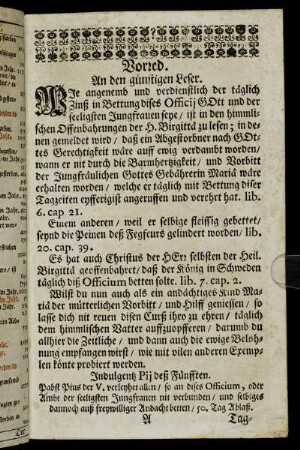 Vorred.
An den günstigen Leser.
WIe angenemb und verdienstlich der täglich
Zinß in Bettung dises Officij GOtt und der
seeligsten Jungfrauen seye, ist in den himmli-
schen Offenbahrungen der H. Birgittä zu lesen; in de-
nen gemeldet wird, daß ein Abgestorbner nach GOt-
tes Gerechtigkeit wäre auff ewig verdambt worden,
wann er mit durch die Barmhertzigkeit, und Vorbitt
der Jungfräulichen Gottes Gebährerin Mariä wäre
erhalten worden, welche er täglich mit Bettung diser
Tagzeiten eyfferigist angeruffen und verehrt hat. lib.
6. cap 21.
Einem anderen, weil er selbige fleissig gebettet,
seynd die Peinen deß Fegfeurs gelindert worden, lib.
20. cap. 39.
Es hat auch Christus der HErr selbsten der Heil.
Birgittä geoffenbahret, daß der König in Schweden
täglich diß Officium betten solte. lib. 7. cap. 2.
Wilst du nun auch als ein andächtiges Kind Ma-
riä der mütterlichen Vorbitt, und Hilff geniessen, so
lasse dich nit reuen disen Curß ihro zu ehren, täglich
dem himmlischen Vatter auffzuopfferen, darumb du
allhier die Zeitliche, und dann auch die ewige Beloh-
nung empfangen wirst, wie mit vilen anderen Exemp-
len könte probiert werden.
Indulgentz Pij deß Fünfften.
Pabst Pius der V. verleyhet allen, so an dises Officium, oder
Ambt der seeligsten Jungfrauen nit verbunden, und selbiges
dannoch auß freywilliger Andacht betten, 50. Tag Ablaß.
A Tag-